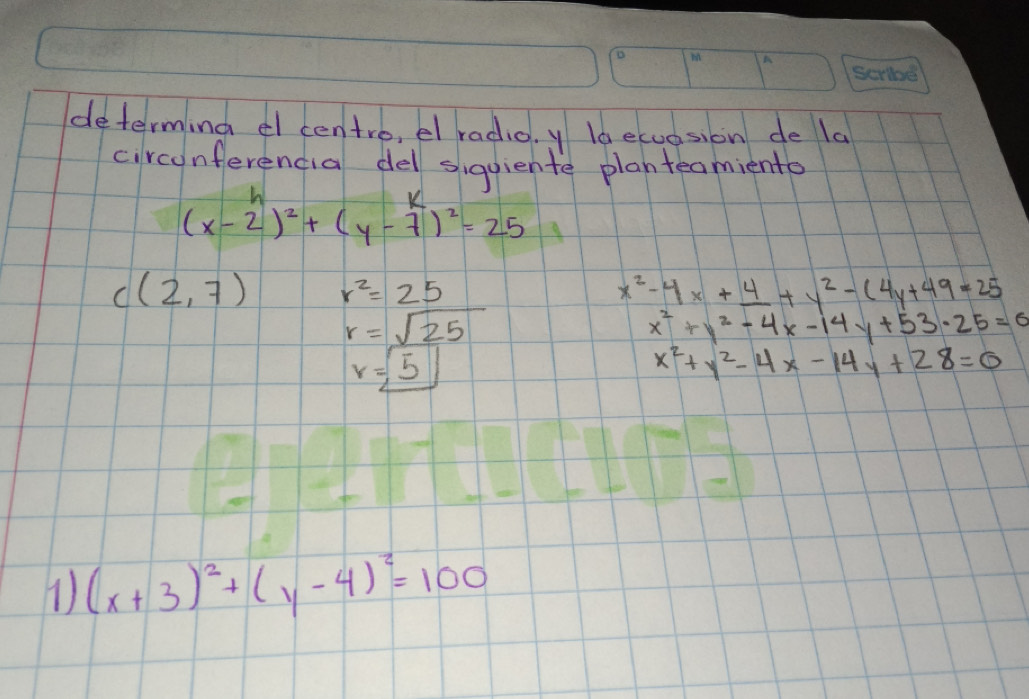 D M A Scribe
determina el centro, el radio. y la ecuasion de la
circunferencia del siguiente planteamiento
h K
(x-2)² + (y-7)² = 25
c(2,7) r² = 25 x²-4x+4+y²-(4y+49=25
r = √25 x²+y²-4x-14y+53-25=0
r = 5 x²+y²-4x-14y+28=0
ejercicios
1) (x+3)² + (y-4)² = 100